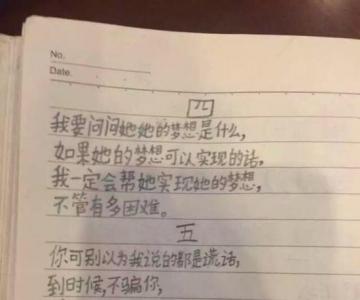 No.
Date.
四
我要问问她她的梦想是什么,
如果她的梦想可以实现的话,
我一定会帮她实现她的梦想,
不管有多困难。
五
你可别以为我说的都是谎话,
到时候,不骗你,